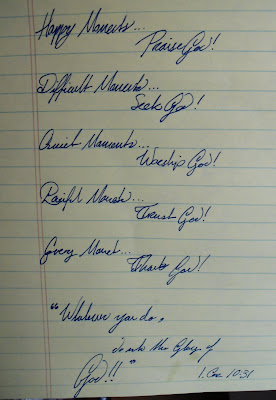 Happy Moments...
Praise God!
Difficult Moments...
Seek God!
Quiet Moments...
Worship God!
Painful Moments...
Trust God!
Every Moment...
Thank God!
"Whatever you do,
do unto the Glory of
God!!"
1 Cor 10:31